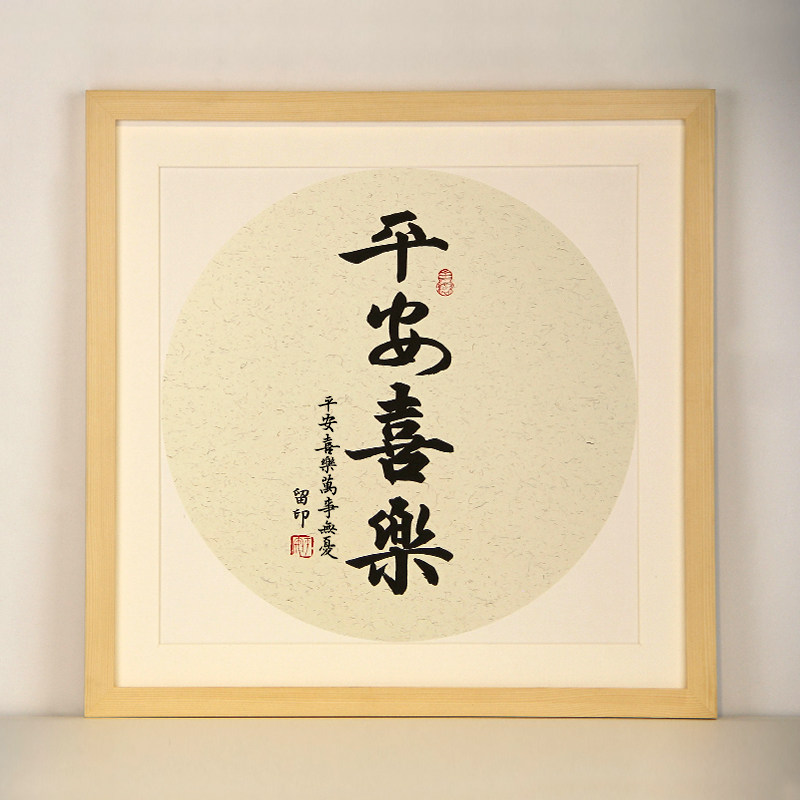 平安喜樂
平安喜樂萬事無憂
留印